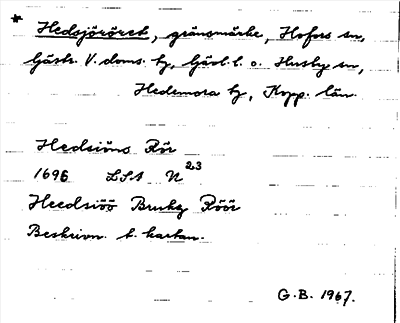 * Hedsjöröret, gränsmärke, Hofors sn,
Gästr. V. doms. tg, Gävl. l. o. Husby sn,
Hedemora tg, Kopp. län.
Hedsiöns Rör
1696 LSA N 23
Heedsiöö Bruks Röör
Beskrivn. t. kartan.
G.B. 1967.